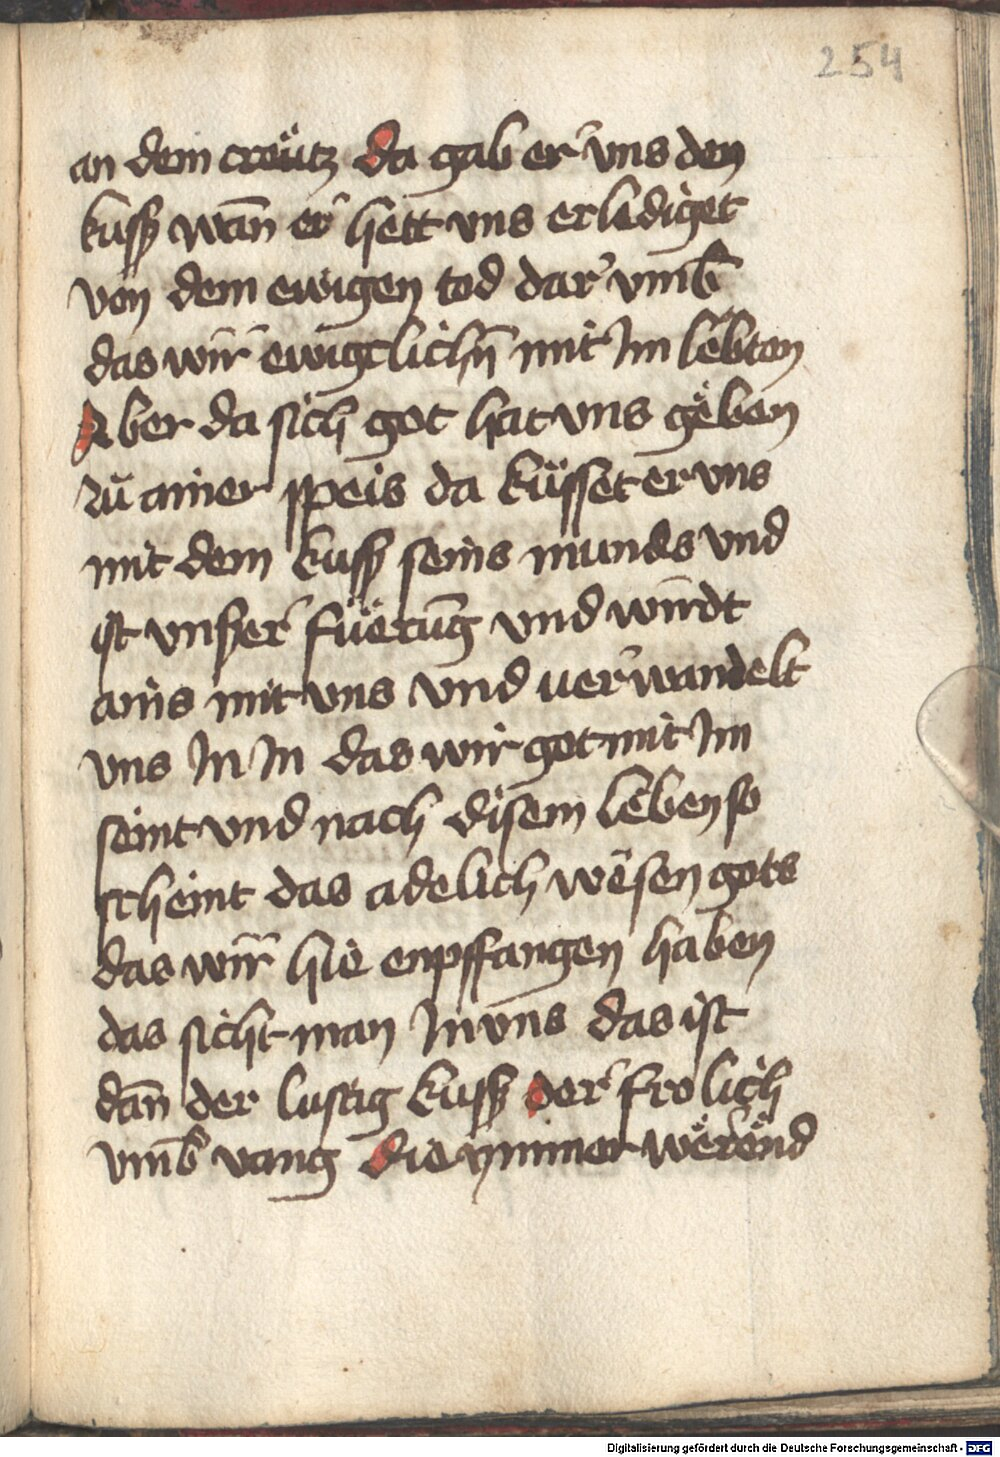 254
an dem creütz da gab er uns den
kuss wān er hett vns erlediget
von dem ewigen tod dar vmb
das wir ewigclichn̄ mit Im lebten
Aber da sich got hat vns geben
zu ainer speis da küsset er vns
mit dem kuss seins mundes vnd
ist vnser füerūg vnd wirdt
ains mit vns vnd uerwandelt
vns In In das wir got mit Im
seint vnd nach disem leben so
scheint das adelich wesen gots
das wir hie enpffangen haben
das sicht man In vns das ist
dān der lustig kuss der frolich
vmb vang die ymmer werend
Digitalisierung gefördert durch die Deutsche Forschungsgemeinschaft - DFG